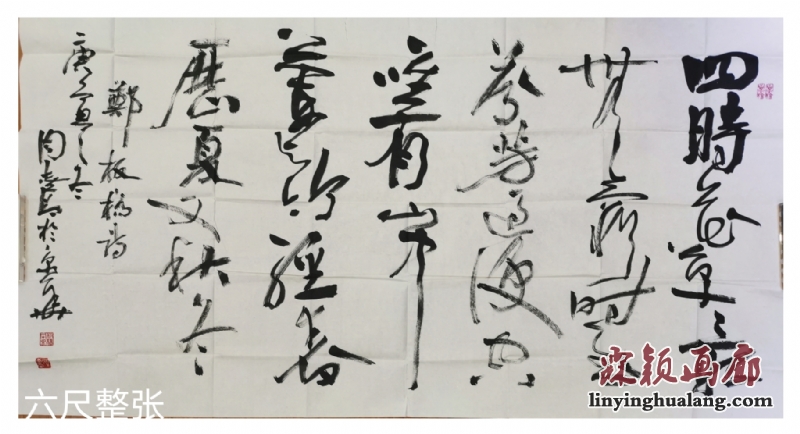 四時花草最
無窮時到
芬芳過便空
唯有山中
蘭与竹經春
歷夏又秋冬
鄭板橋詩
庚寅之冬
於京華
六尺整张
霖颖画廊
linyinghualang.com